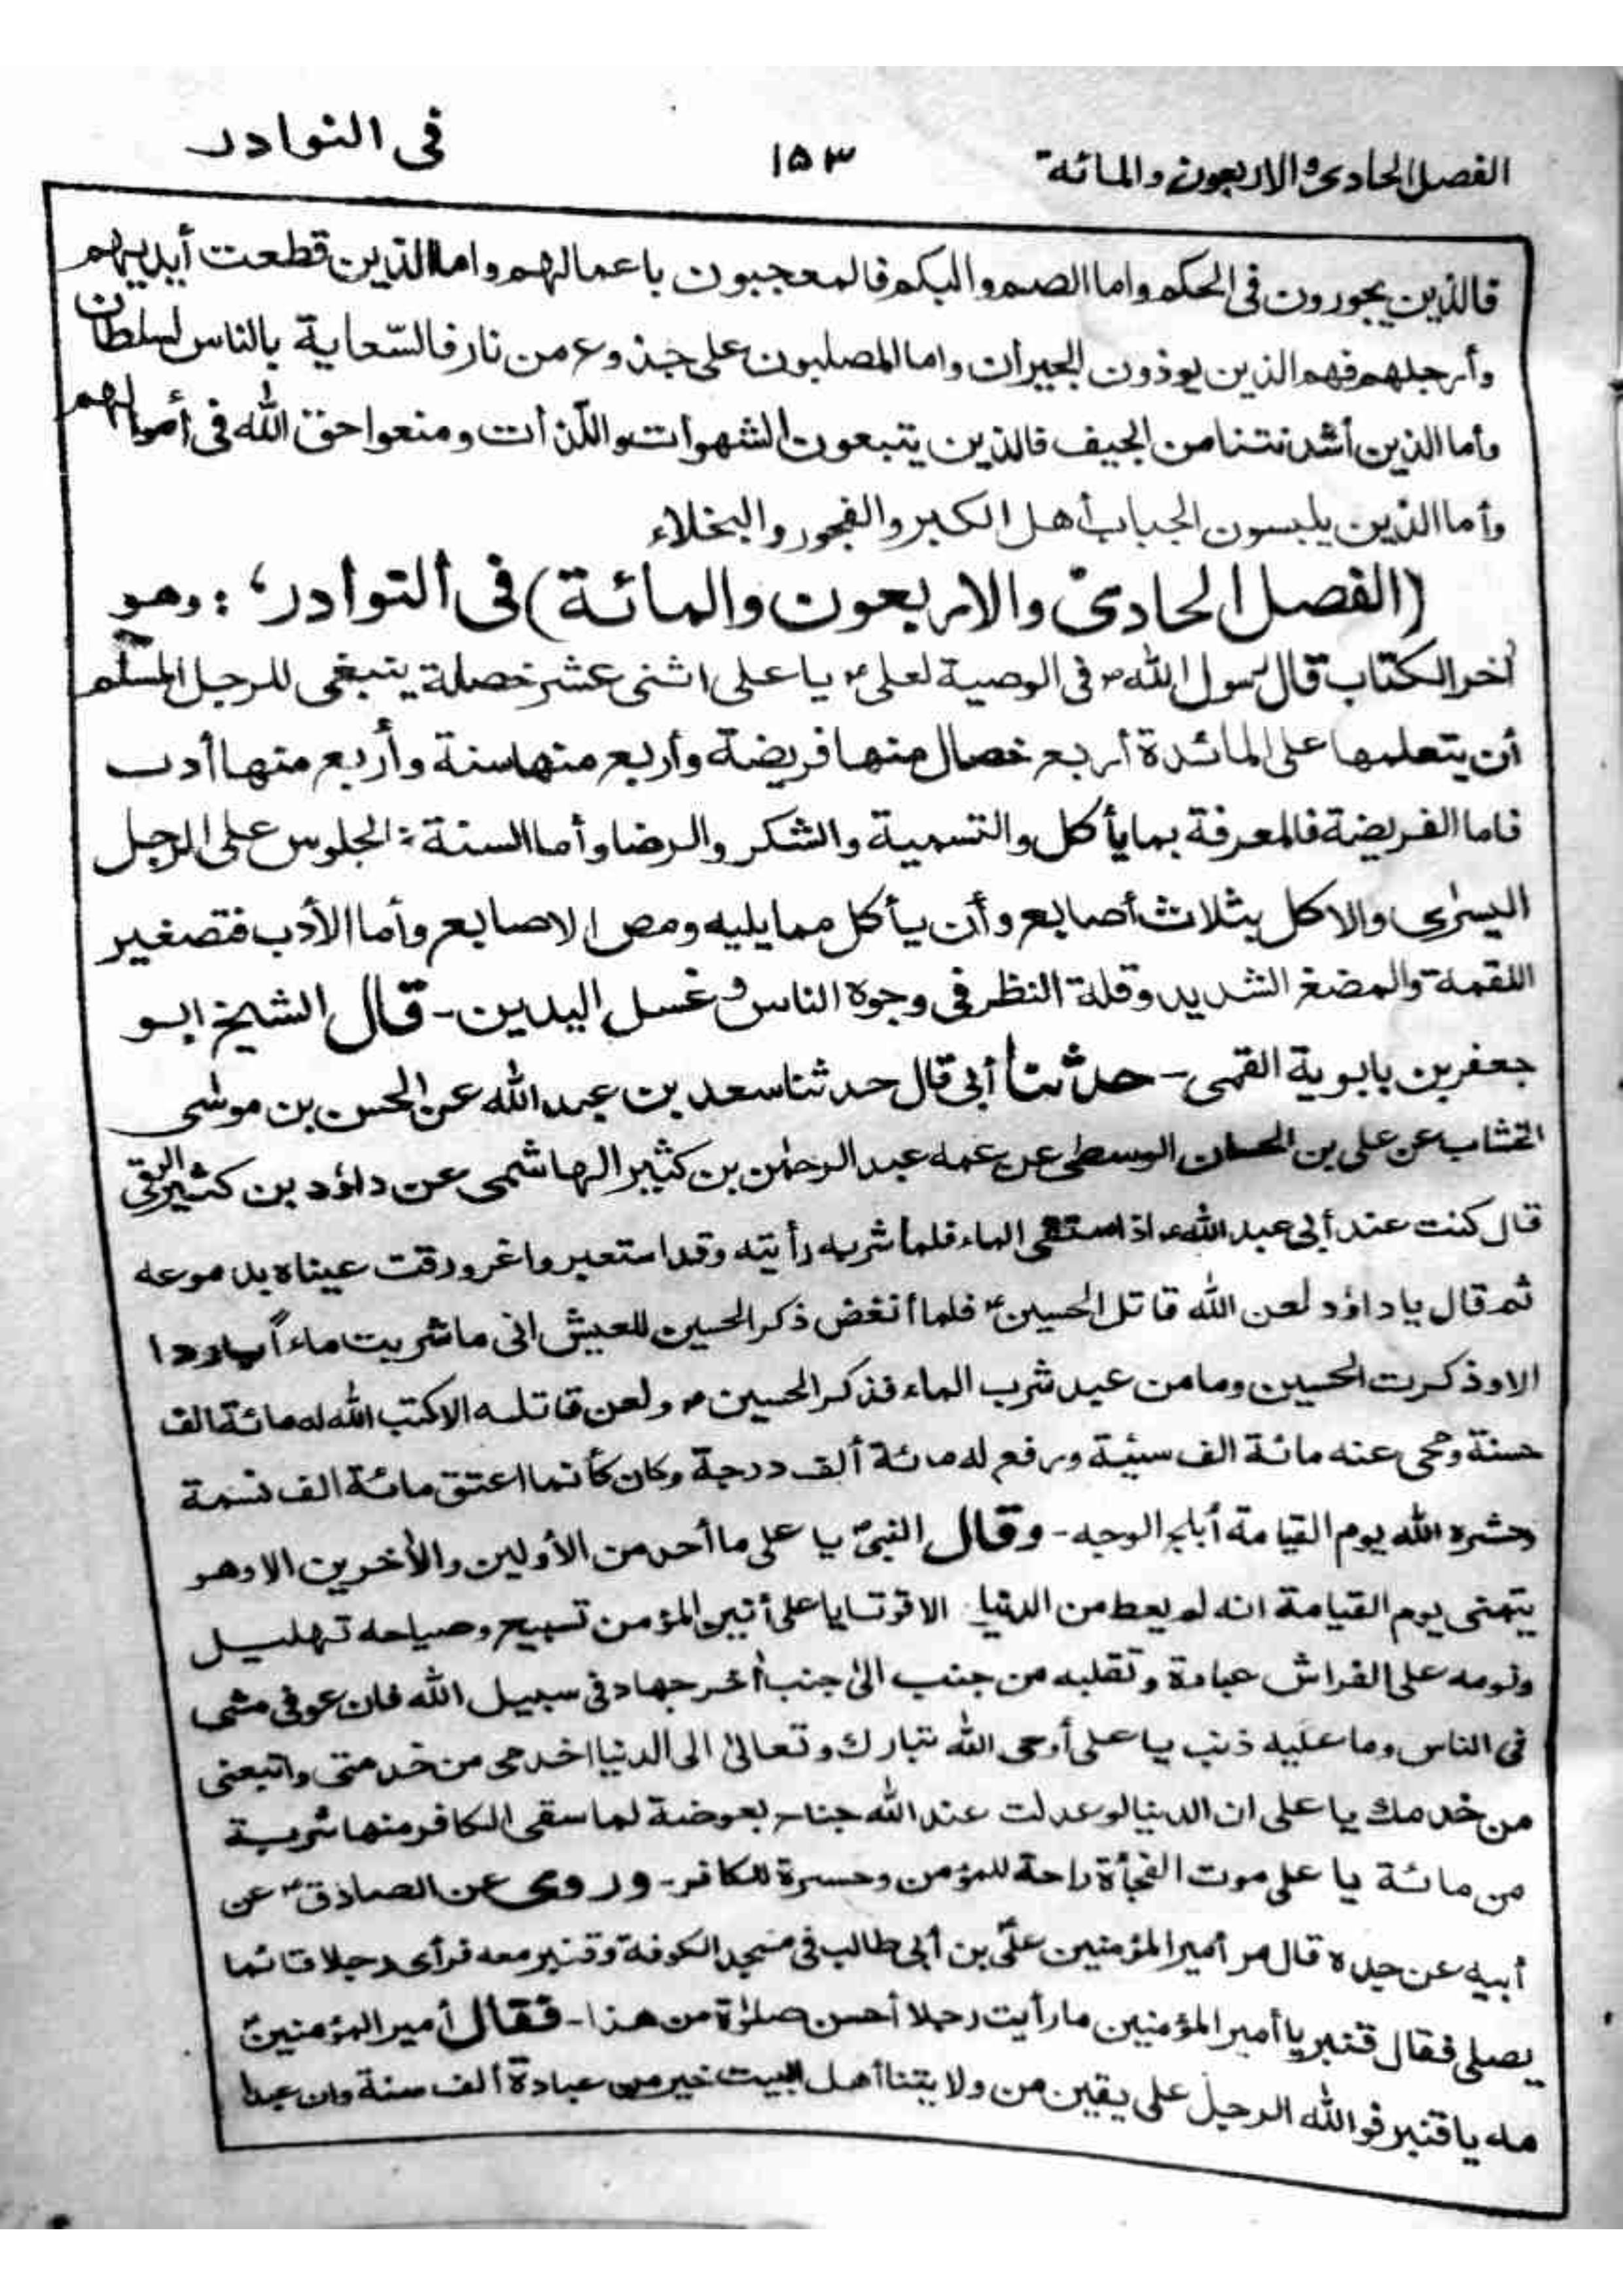 الفصل الحادی و الاربعون و المائة ١٥٣ فی النوادر
فالذین یجورون فی الحکم واما الصم والبکم فالمعجبون باعمالهم واما الذین قطعت أیدیهم
وأرجلهم فهم الذین یوذون الجیران واما المصلبون علی جذوع من نار فالسّعایة بالناس لسلطان
وأما الذین أشد نتنا من الجیف فالذین یتبعون الشهوات واللّذات ومنعوا حق الله فی أموالهم
وأما الذین یلبسون الجباب أهل الکبر والفجور والبخلاء
(الفصل الحادی والاربعون والمائة) فی النوادر؛ : وهو
اٰخر الکتاب قال رسول الله ص فی الوصیة لعلی ع یا علی اثنی عشر خصلة ینبغی للرجل المسلم
أن یتعلمها علی المائدة أربع خصال منها فریضة وأربع منها سنة وأربع منها أدب
فاما الفریضة فالمعرفة بما یأکل والتسمیة والشکر والرضا وأما السنة : الجلوس علی الرجل
الیسرٰی والاکل بثلاث أصابع وأن یأکل مما یلیه ومص الاصابع وأما الأدب فتصغیر
اللقمة والمضغ الشدید وقلة النظر فی وجوه الناس و غسل الیدین - قال الشیخ ابو
جعفر بن بابویة القمی - حدثنا أبی قال حدثنا سعد بن عبد الله عن الحسن بن موسٰی
الخشاب عن علی بن الحسان الوسطی عن عمه عبد الرحمٰن بن کثیر الهاشمی عن داؤد بن کثیر الرقی
قال کنت عند أبی عبد الله ع اذا ستقی الماء فلما شربه رأیته وقد استعبر واغرورقت عیناه بدموعه
ثم قال یا داؤد لعن الله قاتل الحسین ع فلما أنغض ذکر الحسین للعیش انی ما شربت ماءاً باردا
الاوذکرت الحسین وما من عبد شرب الماء فذکر الحسین ع ولعن قاتله الاکتب الله له مائة الف
حسنة ومحی عنه مائة الف سیئة ورفع له مائة ألف درجة وکان کأنما اعتق مائة الف نسمة
وحشره الله یوم القیامة أبلج الوجه - وقال النبی ص یا علی ما أحد من الأولین والأخرین الا وهو
یتمنی یوم القیامة انه لم یعط من الدنیا الا قوتا یا علی أنین المؤمن تسبیح وصیاحه تهلیل
ونومه علی الفراش عبادة وتقلبه من جنب الیٰ جنب أخر جهاد فی سبیل الله فان عوفی مشی
فی الناس وما علیه ذنب یا علی أوحی الله تبارك وتعالیٰ الی الدنیا اخدمی من خدمتی واتبعنی
من خدمك یا علی ان الدنیا لو عدلت عند الله جناح بعوضة لما سقی الکافر منها شربة
من مائة یا علی موت الفجأة راحة للمؤمن وحسرة للکافر - وروی عن الصادق ع عن
أبیه عن جده قال مر أمیر المؤمنین علیّ بن أبی طالب فی مسجد الکوفة وقنبر معه فرأی رجلا قائما
یصلی فقال قنبر یا أمیر المؤمنین ما رأیت رجلا أحسن صلوٰة من هذا - فقال أمیر المؤمنین ع
مه یا قنبر فوالله الرجل علی یقین من ولایتنا أهل البیت خیر من عبادة ألف سنة وان عبدا